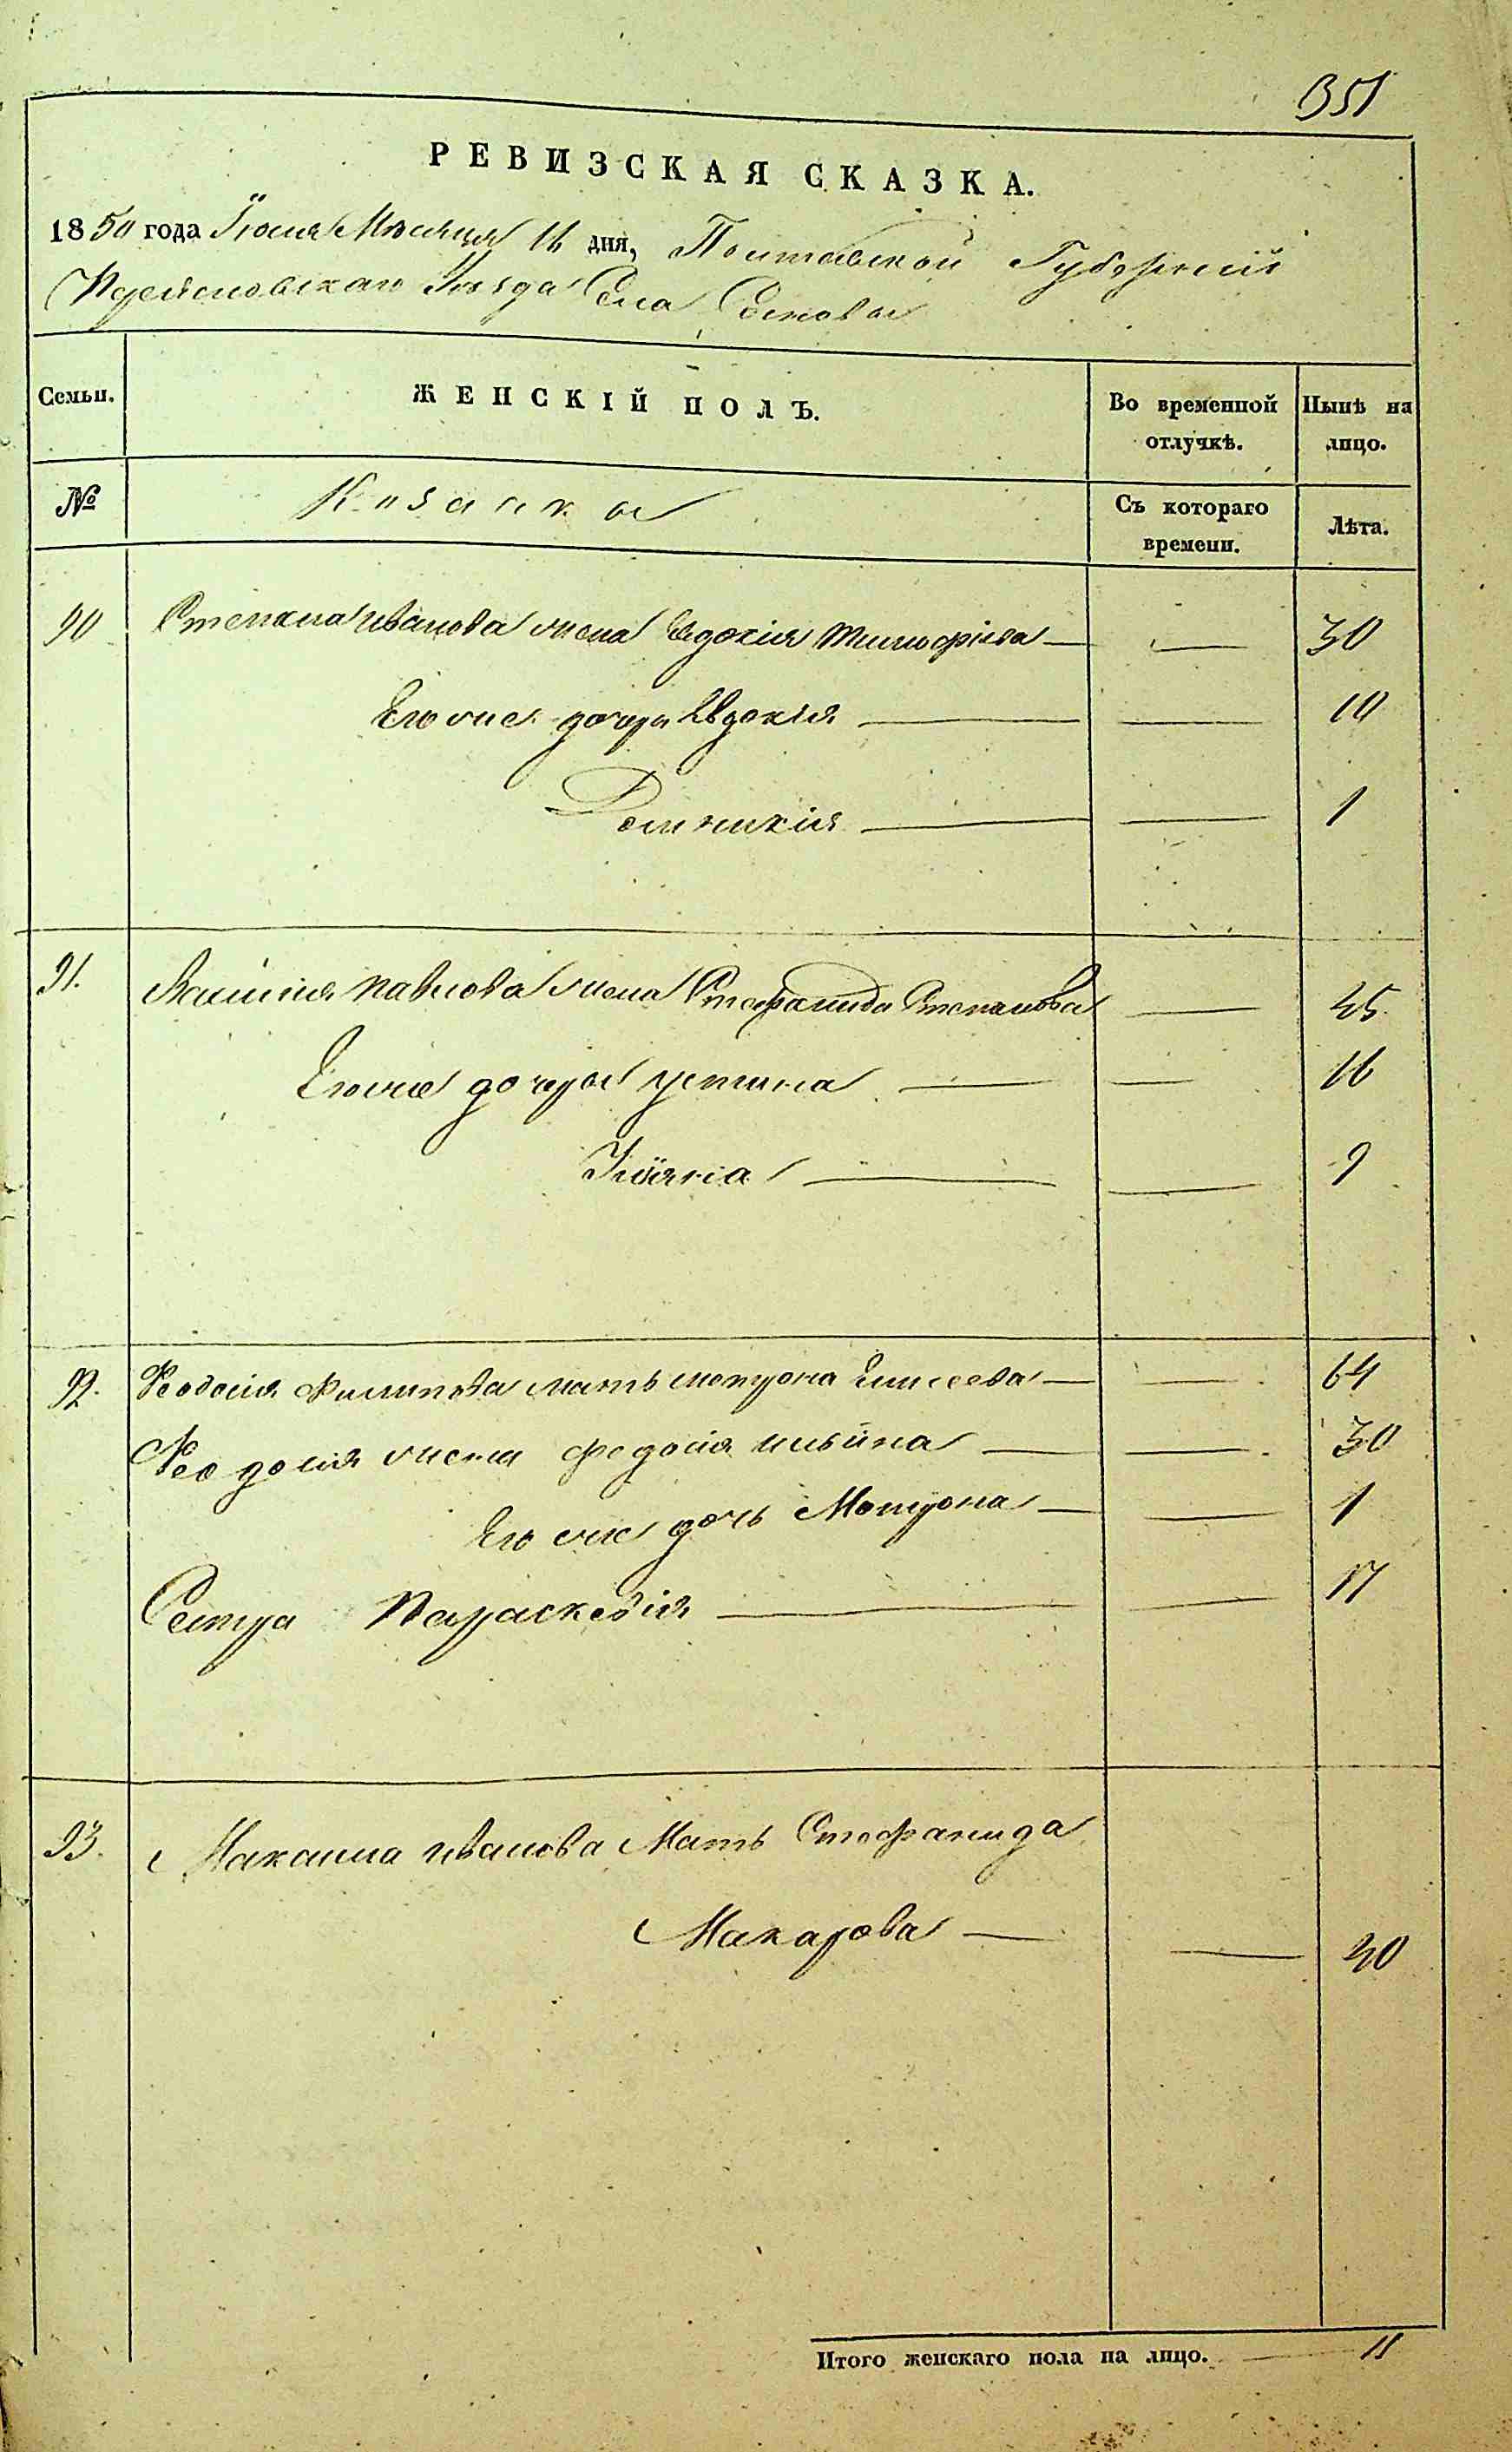 351
РЕВИЗСКАЯ СКАЗКА.
1850 года Іюля Мѣсяца 14 дня, Полтавской Губерніи
Уѣзда Села
Семьи. ЖЕНСКІЙ ПОЛЪ. Во временной отлучкѣ. Нынѣ на лицо.
№ Козачки Съ котораго времени. Лѣта.
90 Степана Иванова жена Евдокія Тимофіева — — 30
Его же дочери Евдокія — — 10
Домникія — — 1
91. Павлова жена Стефанида Степанова — 45
Его же дочеры устина — — 16
— — 9
92. Феодосія Филипова мать мотрона Елисеева — — 64
Феодосія жена федосія ильина — — 30
Его же дочь Мотрона — — 1
Сестра Параскевія — — 17
93. Максима Иванова Мать Стефанида
Макарова — — 40
Итого женскаго пола на лицо. — 11